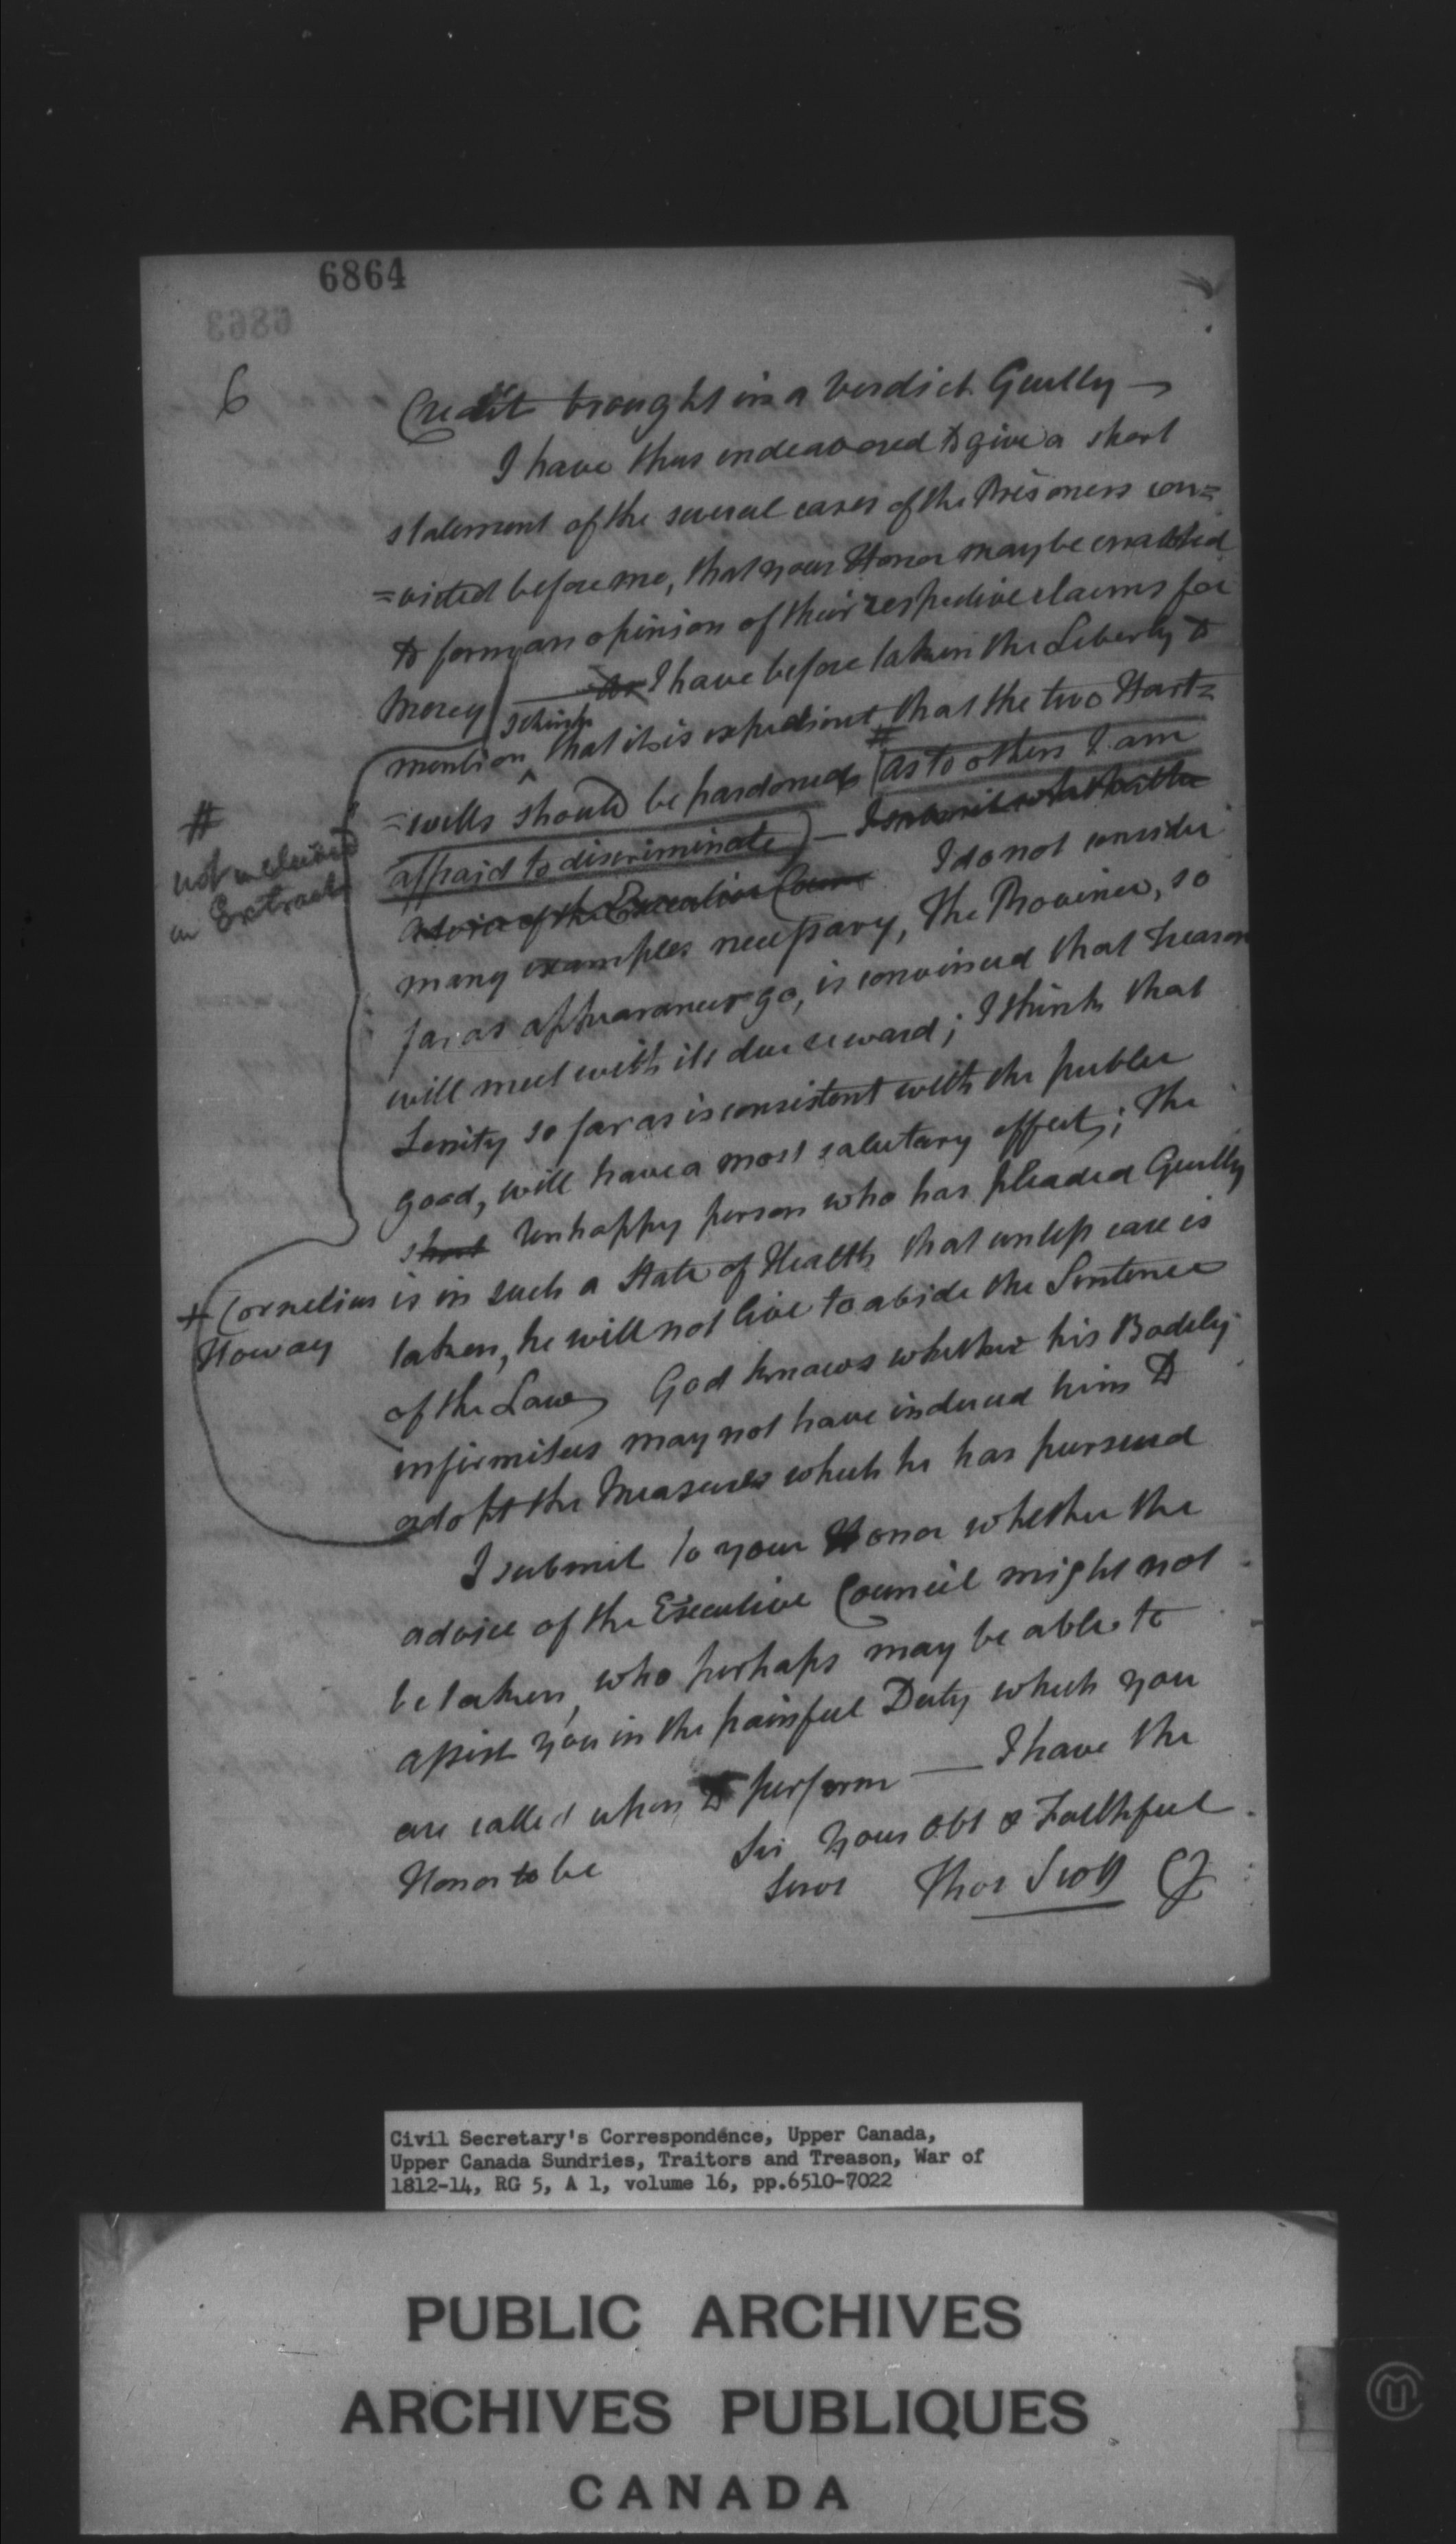 6864
6863
6
Credit brought in a Verdict Guilty —
I have thus endeavored to give a short
statement of the several cases of the Prisoners con=
=victed before me, that your Honor may be enabled
to form an opinion of their respective claims for
Mercy — As I have before taken the Liberty to
mention I think that it is expedient that the two Hart=
=wells should be pardoned # (as to others I am
affraid to discriminate) — I submit whether the
advice of the Executive Coun I do not consider
many examples necessary, the Province, so
far as appearances go, is convinced that Treason
will meet with its due reward; I think that
Lenity so far as is consistent with the public
good, will have a most salutary effect; The
Unhappy person who has pleaded Guilty
# Cornelius is in such a State of Health that unless care is
Howay taken, he will not live to abide the Sentence
of the Law God knows whether his Bodily
infirmities may not have induced him to
adopt the Measures which he has pursued
I submit to your Honor whether the
advice of the Executive Council might not
be taken, who perhaps may be able to
assist you in the painful Duty which you
are called upon to perform — I have the
Honor to be Sir your Obt & Faithful
Servt Thos Scott CJ
#
not included
in Extract
Civil Secretary's Correspondence, Upper Canada,
Upper Canada Sundries, Traitors and Treason, War of
1812-14, RG 5, A 1, volume 16, pp.6510-7022
PUBLIC ARCHIVES
ARCHIVES PUBLIQUES
CANADA